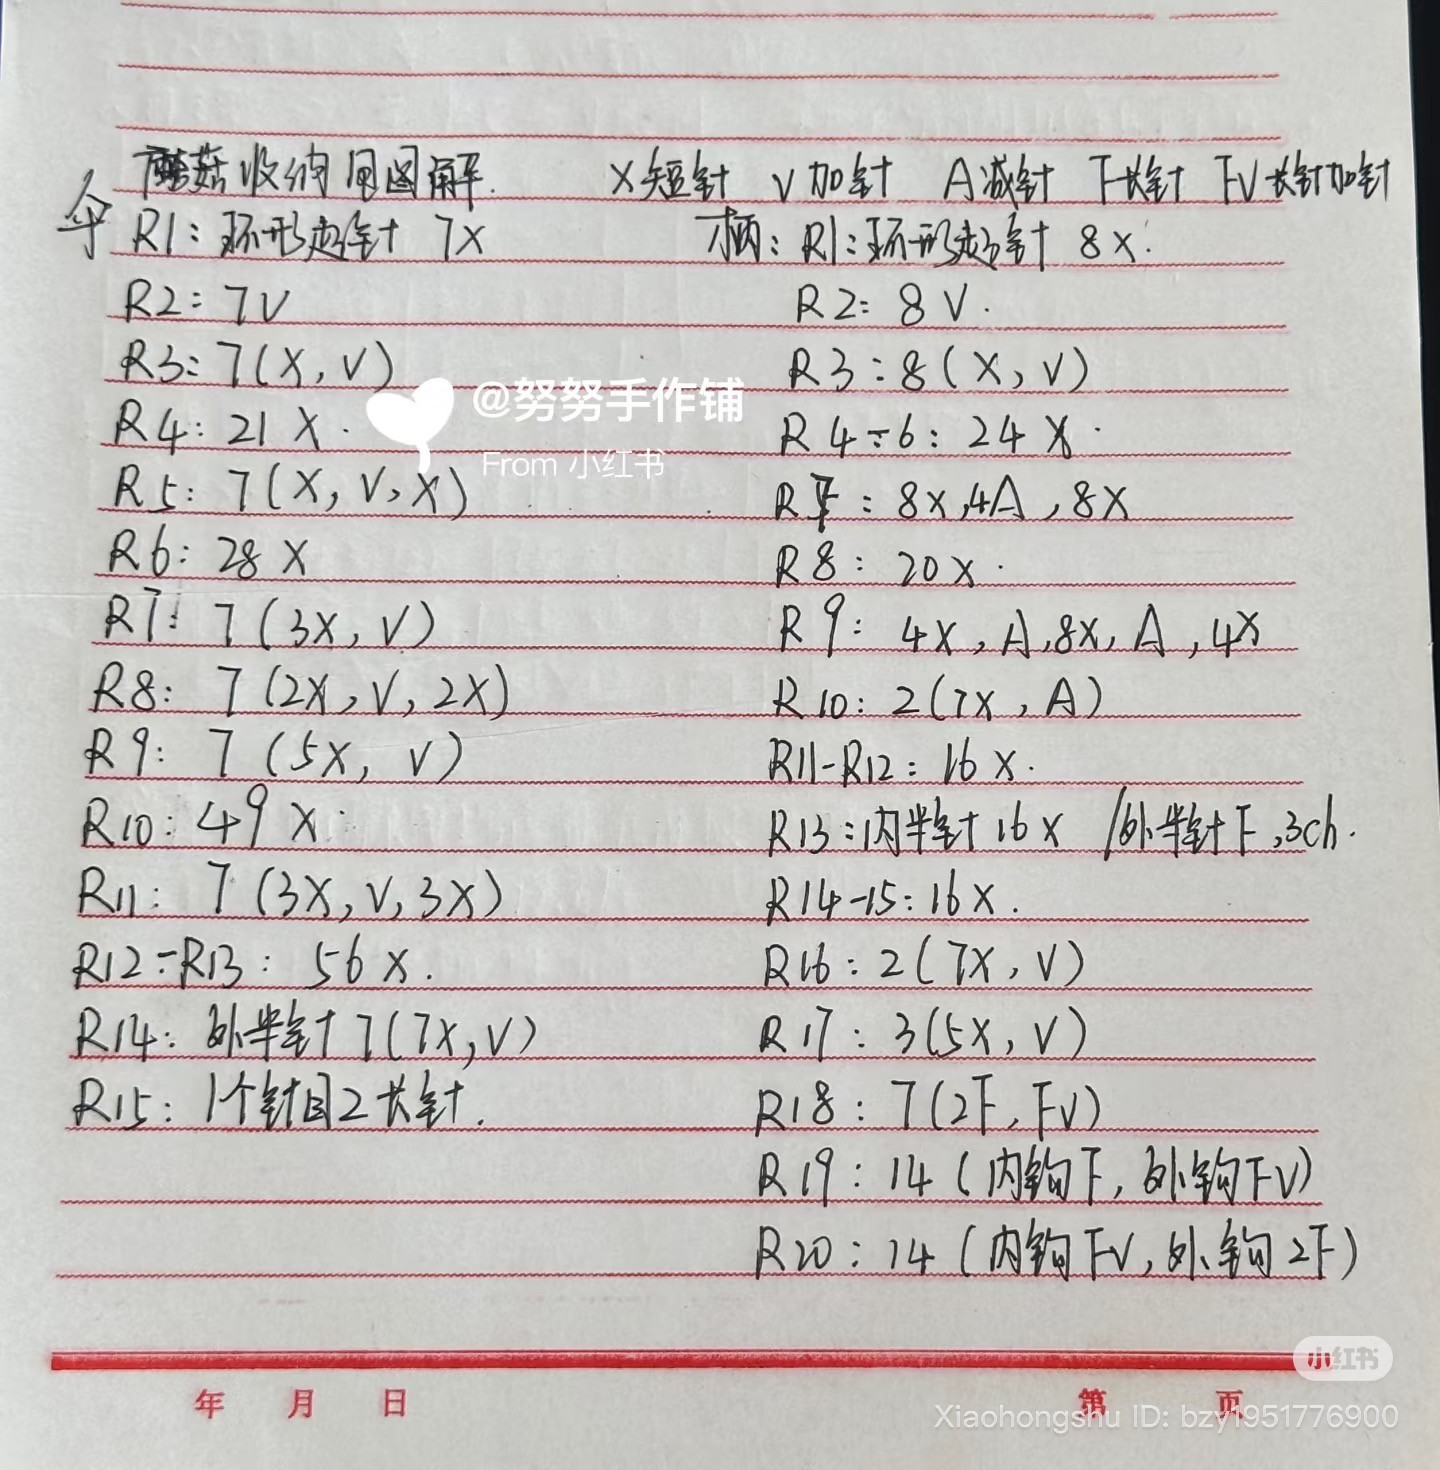 蘑菇收纳包图解. X短针 V加针 A减针 F长针 FV长针加针
伞 R1: 环形起针 7X
R2: 7V
R3: 7(X, V)
R4: 21 X.
R5: 7(X, V, X)
R6: 28 X
R7: 7(3X, V)
R8: 7(2X, V, 2X)
R9: 7(5X, V)
R10: 49 X.
R11: 7(3X, V, 3X)
R12-R13: 56 X.
R14: 外半针 7(7X, V)
R15: 1个针目2长针.
柄: R1: 环形起针 8X.
R2: 8V.
R3: 8(X, V)
R4-6: 24 X.
R7: 8X, 4A, 8X
R8: 20X.
R9: 4X, A, 8X, A, 4X
R10: 2(7X, A)
R11-R12: 16X.
R13: 内半针 16X /外半针F, 3ch.
R14-15: 16X.
R16: 2(7X, V)
R17: 3(5X, V)
R18: 7(2F, FV)
R19: 14(内钩F, 外钩FV)
R20: 14(内钩FV, 外钩2F)
@努努手作铺
From 小红书
年 月 日
第 页
小红书
Xiaohongshu ID: bzy1951776900